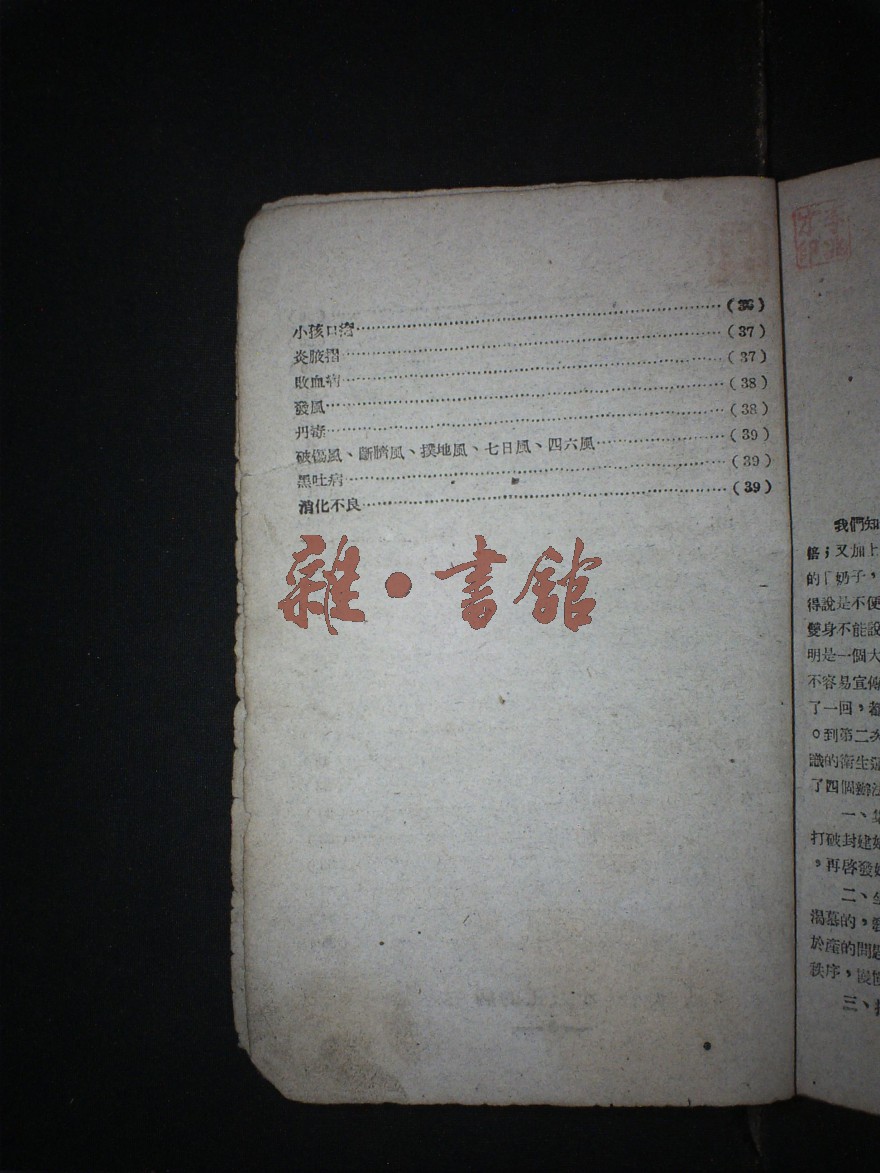 小孩口瘡……(36)
炎腋摺……(37)
敗血病……(37)
發風……(38)
丹毒……(38)
破傷風、斷臍風、撲地風、七日風、四六風……(39)
黑吐病……(39)
消化不良……(39)
雜·書館
我們知
倍;又加上
的「奶子,
得說是不便
雙身不能設
明是一個大
不容易宣傳
了一回,都
。到第二次
識的衛生
了四個辦法
一、
打破封建
,再啓發
二、
渴慕的,
於産的問題
秩序,
三、